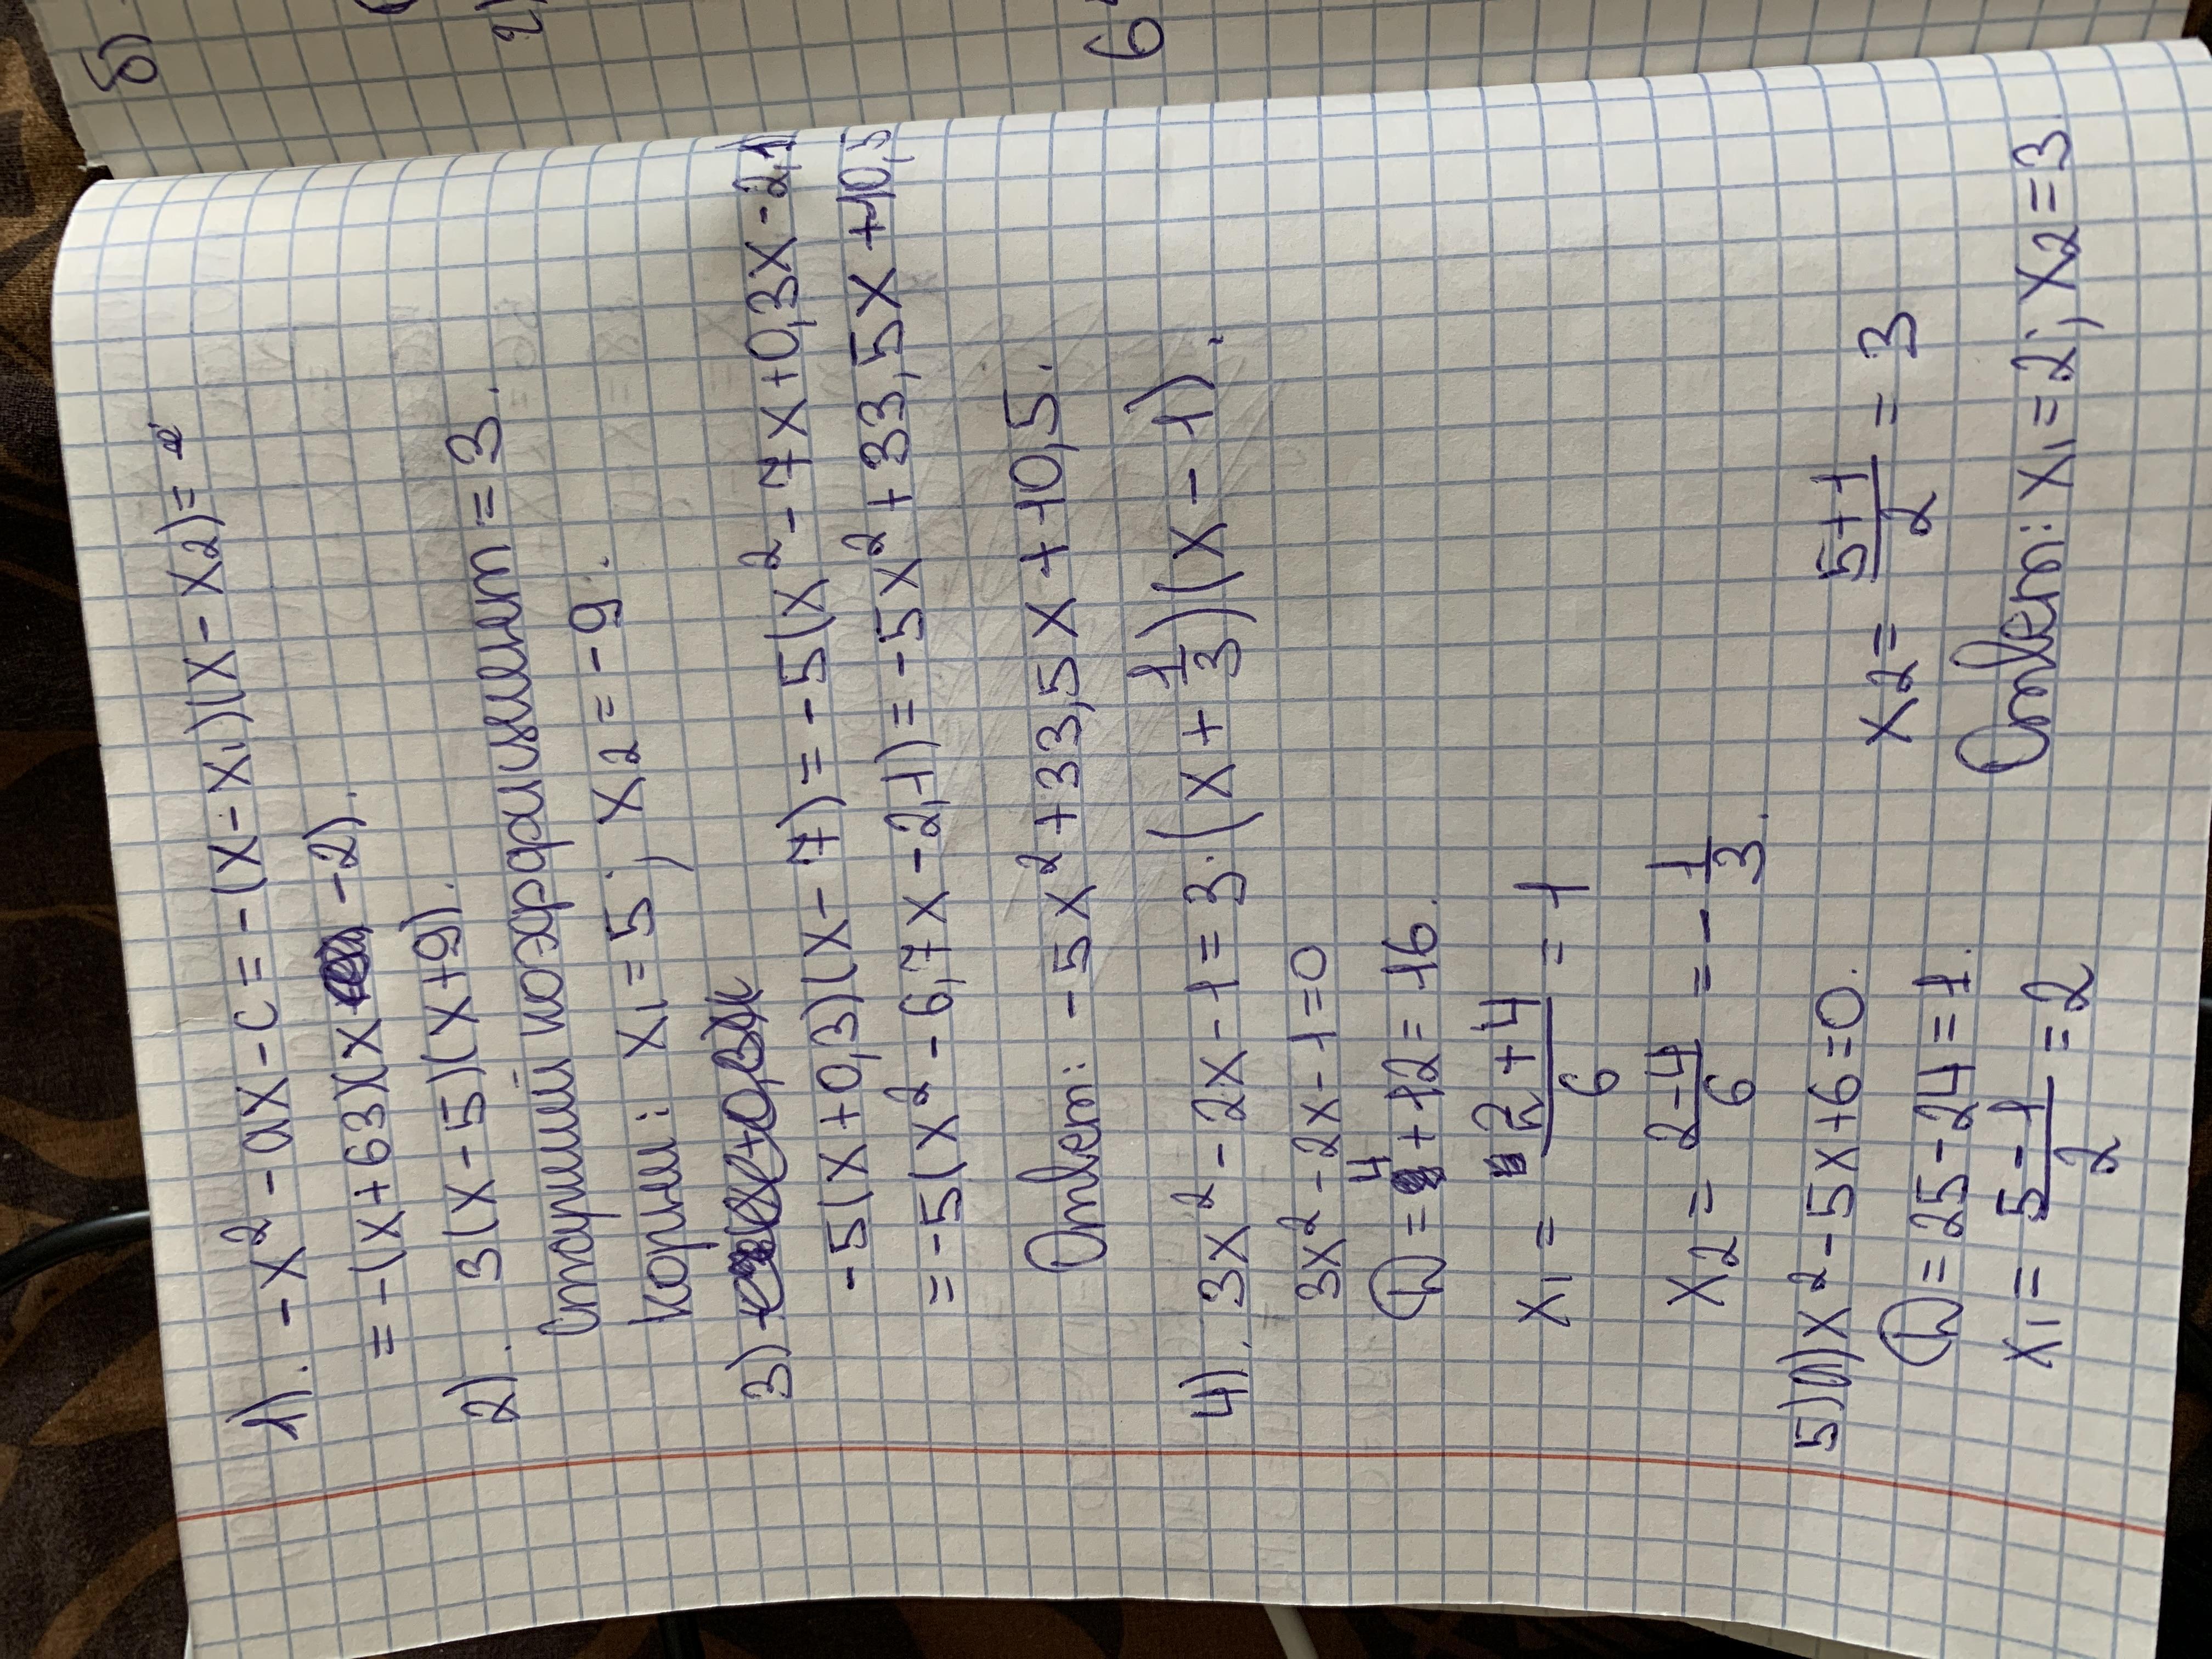 1). -x² - ax - c = -(x - x₁)(x - x₂) =
= -(x + 63)(x -2).
2). 3(x - 5)(x + 9).
Старший коэффициент = 3.
Корни: x₁ = 5; x₂ = -9.
3)
-5(x + 0,3)(x - 7) = -5(x² - 7x + 0,3x - 2,1)
= -5(x² - 6,7x - 2,1) = -5x² + 33,5x + 10,5
Ответ: -5x² + 33,5x + 10,5.
4). 3x² - 2x - 1 = 3·(x + 1/3)(x - 1).
3x² - 2x - 1 = 0
D = 4 + 12 = 16.
x₁ = (2 + 4)/6 = 1
x₂ = (2 - 4)/6 = -1/3.
5) а) x² - 5x + 6 = 0.
D = 25 - 24 = 1.
x₁ = (5 - 1)/2 = 2
x₂ = (5 + 1)/2 = 3
Ответ: x₁ = 2; x₂ = 3.
б)
2)
6